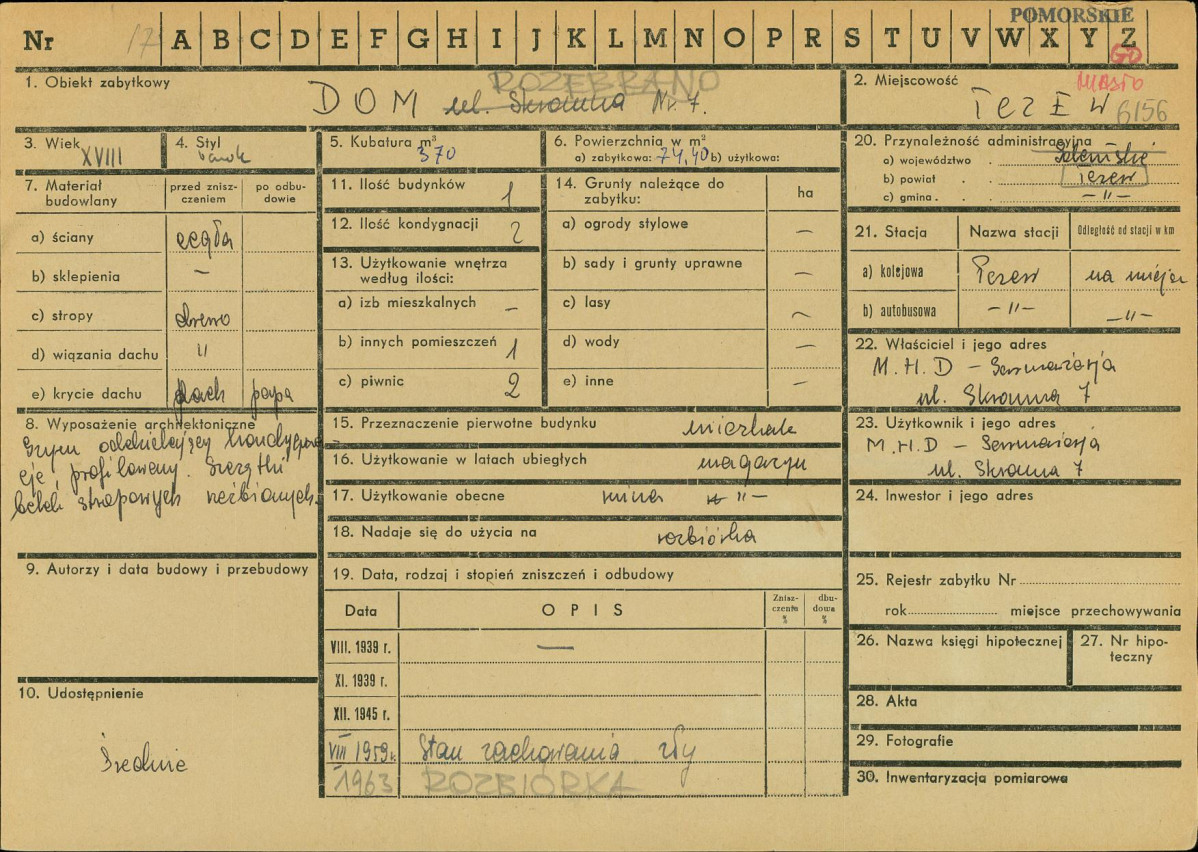 POMORSKIE
Nr 17 A B C D E F G H I J K L M N O P R S T U V W X Y Z
GD
MIASTO
1. Obiekt zabytkowy
ROZEBRANO
DOM ul. Skromna Nr. 7.
2. Miejscowość
TCZEW 6156
3. Wiek XVIII
4. Styl barok
5. Kubatura m³ 370
6. Powierzchnia w m²
a) zabytkowa: 74,40 b) użytkowa:
7. Materiał budowlany
przed zniszczeniem
po odbudowie
a) ściany cegła
b) sklepienia –
c) stropy drewno
d) wiązania dachu "
e) krycie dachu papa
8. Wyposażenie architektoniczne
Gzyms oddzielający kondygnacje, profilowany. Szczątki
belek stropowych rzeźbionych.
9. Autorzy i data budowy i przebudowy
10. Udostępnienie
Średnie
11. Ilość budynków 1
12. Ilość kondygnacji 2
13. Użytkowanie wnętrza
według ilości:
a) izb mieszkalnych –
b) innych pomieszczeń 1
c) piwnic 2
14. Grunty należące do
zabytku:
ha
a) ogrody stylowe –
b) sady i grunty uprawne –
c) lasy –
d) wody –
e) inne –
15. Przeznaczenie pierwotne budynku mieszkalne
16. Użytkowanie w latach ubiegłych magazyn
17. Użytkowanie obecne –"–
18. Nadaje się do użycia na rozbiórka
19. Data, rodzaj i stopień zniszczeń i odbudowy
Data
OPIS
Zniszczenie %
dbudowa %
VIII. 1939 r. –
XI. 1939 r.
XII. 1945 r.
VIII 1959 r. Stan zachowania zły
1963 ROZBIÓRKA
20. Przynależność administracyjna
a) województwo
b) powiat Tczew
c) gmina –"–
21. Stacja
Nazwa stacji
Odległość od stacji w km
a) kolejowa Tczew na miejscu
b) autobusowa –"– –"–
22. Właściciel i jego adres
M.H.D –
ul. Skromna 7
23. Użytkownik i jego adres
M.H.D –
ul. Skromna 7
24. Inwestor i jego adres
25. Rejestr zabytku Nr
rok miejsce przechowywania
26. Nazwa księgi hipotecznej
27. Nr hipoteczny
28. Akta
29. Fotografie
30. Inwentaryzacja pomiarowa